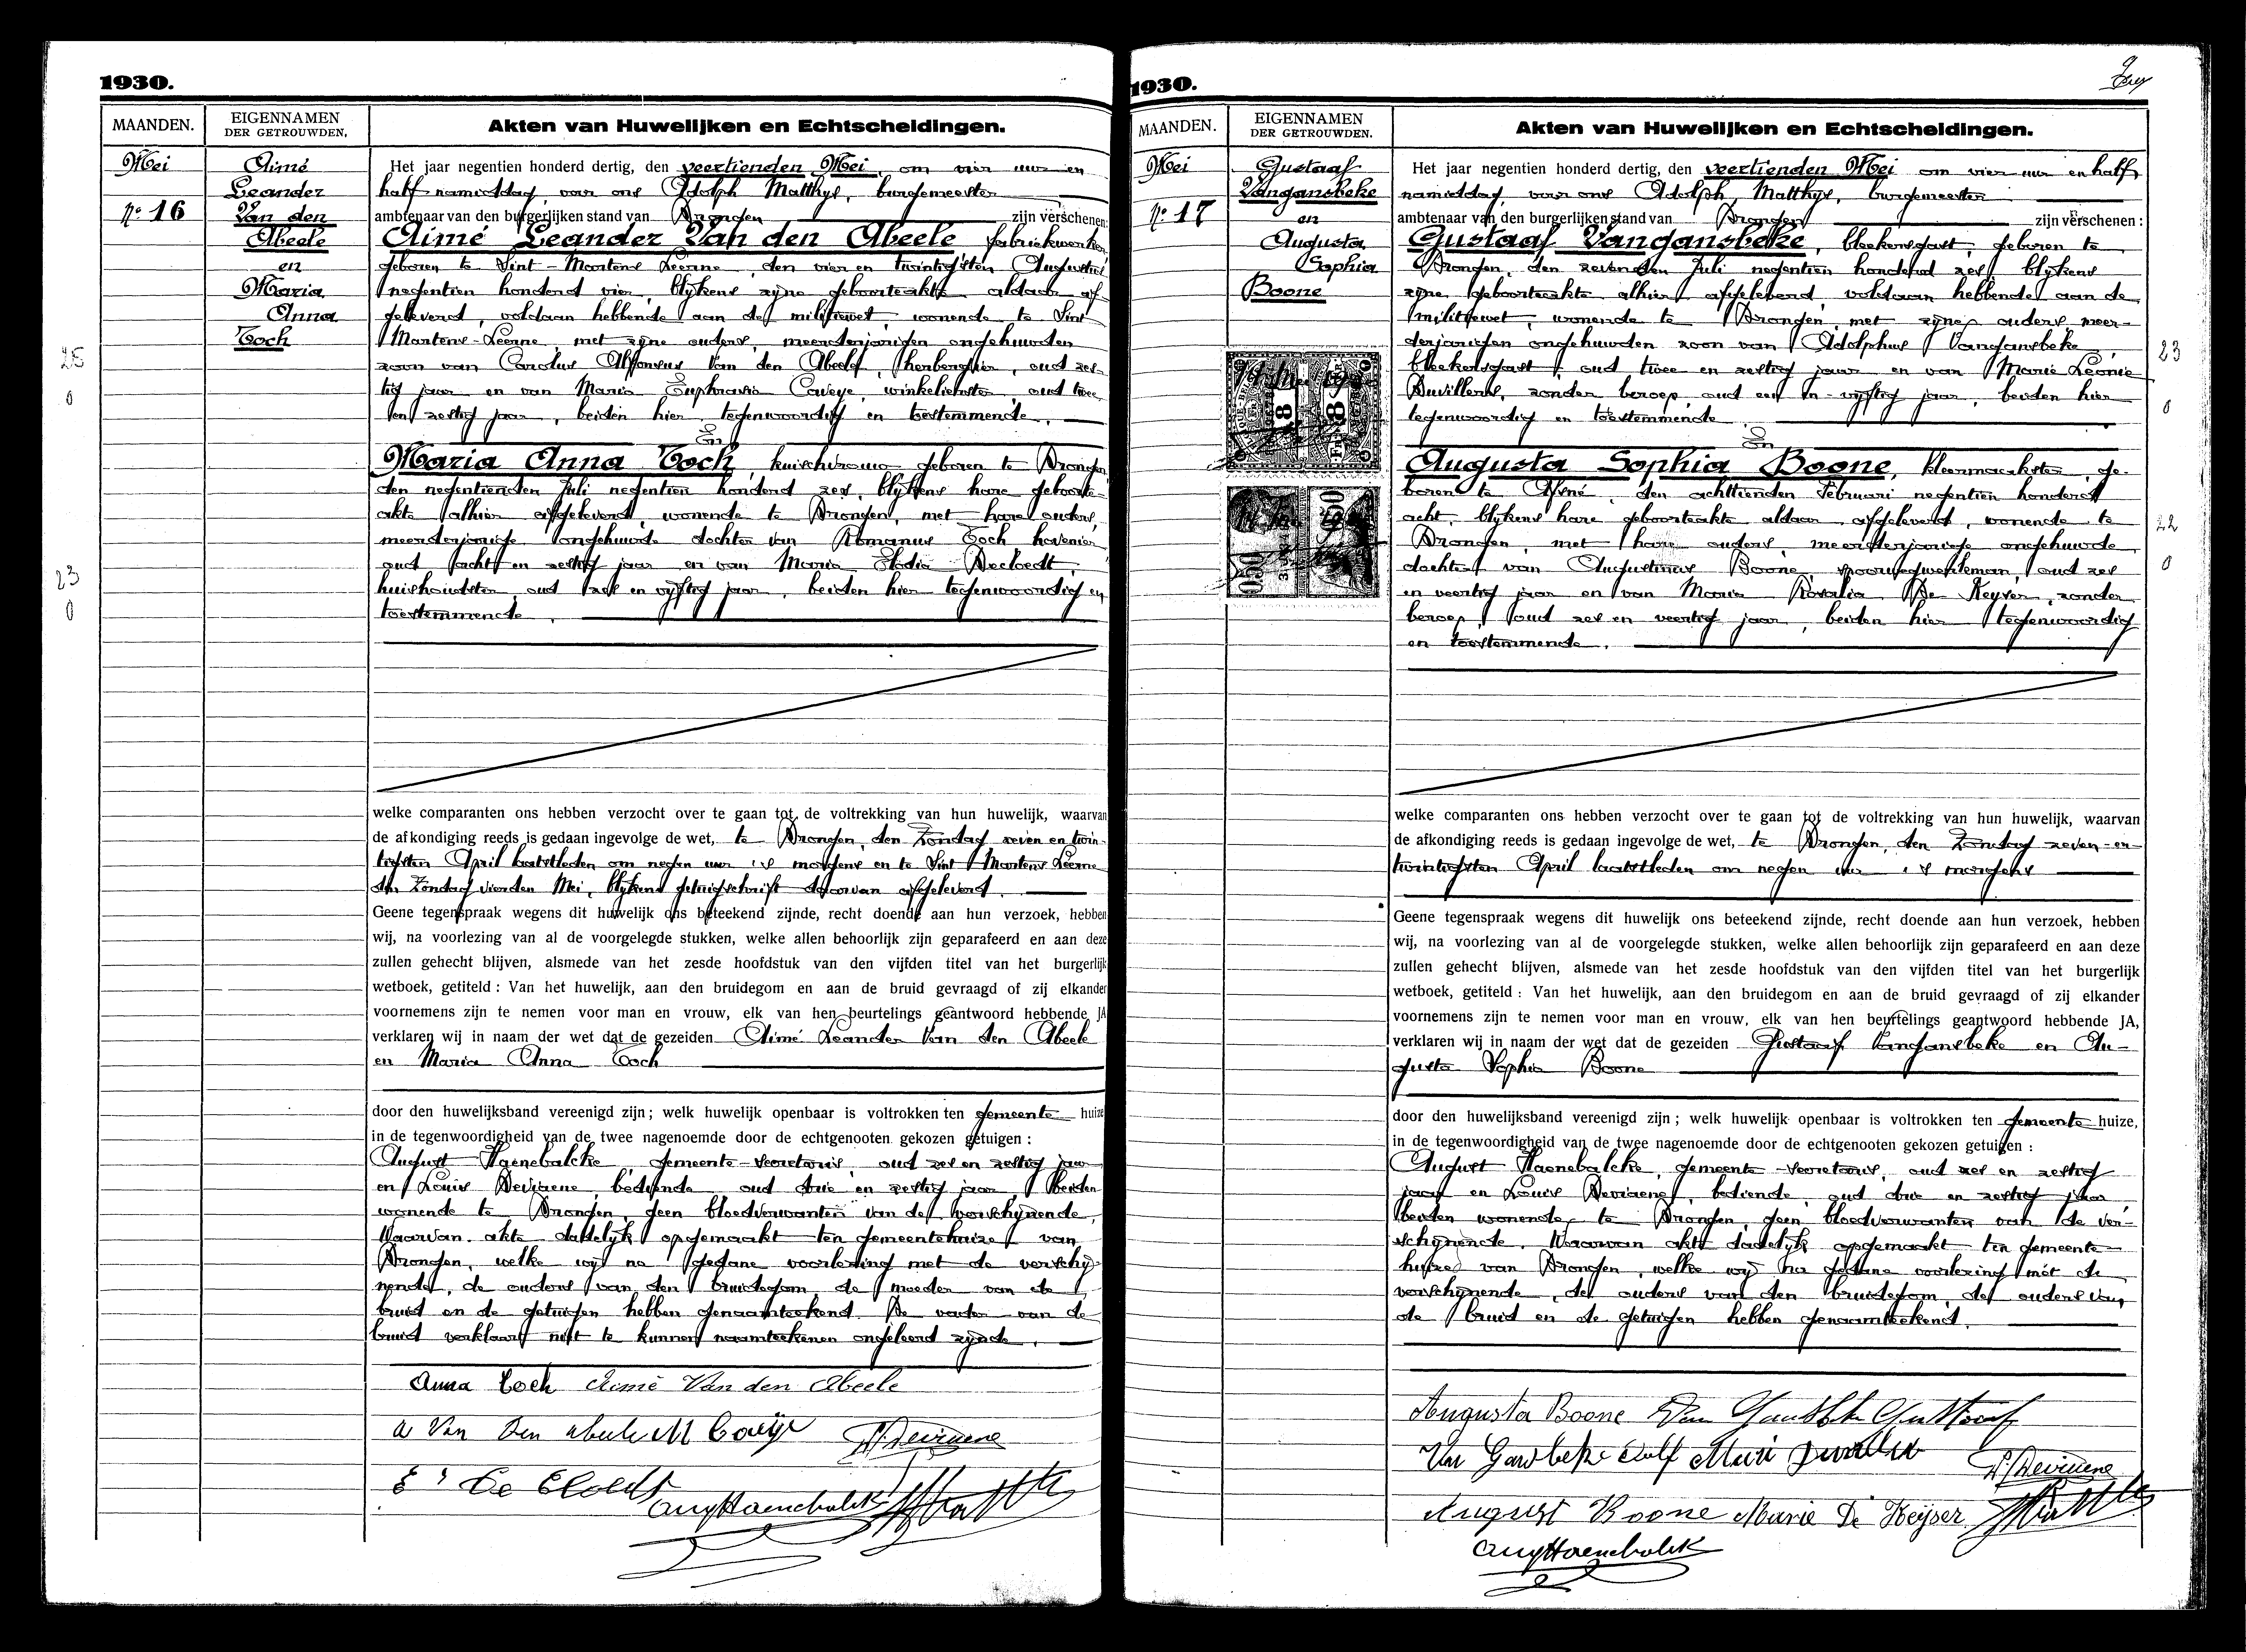 1930.
MAANDEN.
EIGENNAMEN
DER GETROUWDEN.
Akten van Huwelijken en Echtscheidingen.
Mei
No 16
Aimé
Leander
Van den
Abeele
en
Maria
Anna
Coch
25
0
23
0
Het jaar negentien honderd dertig, den veertienden Mei, om vier uur en
half namiddag, voor ons Adolph Matthys, burgemeester
ambtenaar van den burgerlijken stand van Drongen zijn verschenen:
Aimé Leander Van den Abeele fabriekwerker
geboren te Sint-Martens Leerne, den vier en twintigsten Augustus
negentien honderd vier, blijkens zijne geboorteakte aldaar af-
geleverd, voldaan hebbende aan de militiewet, wonende te Sint
Martens-Leerne, met zijne ouders, meerderjarigen ongehuwden
zoon van Carolus Alfonsus Van den Abeele, herbergier, oud zes-
tig jaar en van Maria Euphrasia Caveye, winkelierster, oud twee
en zestig jaar, beiden hier tegenwoordig en toestemmende.
En
Maria Anna Coch, huishoudster geboren te Drongen
den negentienden Juli negentien honderd zes, blijkens hare geboorte-
akte alhier afgeleverd, wonende te Drongen, met hare ouders,
meerderjarige ongehuwde dochter van Romanus Coch hovenier
oud acht en zestig jaar en van Maria Elodia Decloedt,
huishoudster, oud zes en vijftig jaar, beiden hier tegenwoordig en
toestemmende.
welke comparanten ons hebben verzocht over te gaan tot de voltrekking van hun huwelijk, waarvan
de afkondiging reeds is gedaan ingevolge de wet, te Drongen, den Zondag zeven en twin-
tigsten April laatstleden om negen uur 's morgens en te Sint Martens Leerne
den Zondag vierden Mei, blijkens getuigschrift daarvan afgeleverd.
Geene tegenspraak wegens dit huwelijk ons beteekend zijnde, recht doende aan hun verzoek, hebben
wij, na voorlezing van al de voorgelegde stukken, welke allen behoorlijk zijn geparafeerd en aan deze
zullen gehecht blijven, alsmede van het zesde hoofdstuk van den vijfden titel van het burgerlijk
wetboek, getiteld : Van het huwelijk, aan den bruidegom en aan de bruid gevraagd of zij elkander
voornemens zijn te nemen voor man en vrouw, elk van hen beurtelings geantwoord hebbende JA
verklaren wij in naam der wet dat de gezeiden Aimé Leander Van den Abeele
en Maria Anna Coch
door den huwelijksband vereenigd zijn ; welk huwelijk openbaar is voltrokken ten gemeente huize
in de tegenwoordigheid van de twee nagenoemde door de echtgenooten gekozen getuigen :
August Haenebalcke, gemeente-secretaris, oud zes en zestig jaar
en Louis Deviaene, bediende oud drie en zestig jaar, beiden
wonende te Drongen, geen bloedverwanten van de verschijnende,
Waarvan akte dadelijk opgemaakt ten gemeentehuize van
Drongen, welke wij na gedane voorlezing met de verschij-
nende, de ouders van den bruidegom de moeder van de
bruid en de getuigen hebben genaamteekend. De vader van de
bruid verklaart niet te kunnen naamteekenen ongeleerd zijnde.
Anna Coch Aimé Van den Abeele
a Van Den abeele M Caveye L. Deviaene
E De Cloedt
Aug Haenebalck
1930.
MAANDEN.
EIGENNAMEN
DER GETROUWDEN.
Akten van Huwelijken en Echtscheidingen.
Mei
No 17
Gustaaf
Vangansbeke
en
Augusta
Sophia
Boone
23
0
22
0
Het jaar negentien honderd dertig, den veertienden Mei om vier uur en half
namiddag, voor ons Adolph Matthys, burgemeester
ambtenaar van den burgerlijken stand van Drongen zijn verschenen :
Gustaaf Vangansbeke, bleekersgast, geboren te
Drongen, den zevenden Juli negentien honderd zes, blijkens
zijne geboorteakte alhier afgeleverd, voldaan hebbende aan de
militiewet, wonende te Drongen, met zijne ouders, meer-
derjarigen ongehuwden zoon van Adolphus Vangansbeke,
bleekersgast, oud twee en zestig jaar en van Marie Leonie
Duvillers, zonder beroep, oud een en-vijftig jaar, beiden hier
tegenwoordig en toestemmende
En
Augusta Sophia Boone, kleermaakster, ge-
boren te Afsné, den achttienden Februari negentien honderd
acht, blijkens hare geboorteakte aldaar afgeleverd, wonende te
Drongen, met hare ouders, meerderjarige ongehuwde
dochter van Augustinus Boone, spoorwegwerkman, oud zes
en veertig jaar en van Maria Rosalia De Keyser, zonder
beroep, oud zes en veertig jaar, beiden hier tegenwoordig
en toestemmende.
welke comparanten ons hebben verzocht over te gaan tot de voltrekking van hun huwelijk, waarvan
de afkondiging reeds is gedaan ingevolge de wet, te Drongen, den Zondag zeven-en-
twintigsten April laatstleden om negen uur 's morgens
Geene tegenspraak wegens dit huwelijk ons beteekend zijnde, recht doende aan hun verzoek, hebben
wij, na voorlezing van al de voorgelegde stukken, welke allen behoorlijk zijn geparafeerd en aan deze
zullen gehecht blijven, alsmede van het zesde hoofdstuk van den vijfden titel van het burgerlijk
wetboek, getiteld : Van het huwelijk, aan den bruidegom en aan de bruid gevraagd of zij elkander
voornemens zijn te nemen voor man en vrouw, elk van hen beurtelings geantwoord hebbende JA,
verklaren wij in naam der wet dat de gezeiden Gustaaf Vangansbeke en Au-
gusta Sophia Boone
door den huwelijksband vereenigd zijn ; welk huwelijk openbaar is voltrokken ten gemeente huize,
in de tegenwoordigheid van de twee nagenoemde door de echtgenooten gekozen getuigen :
August Haenebalcke, gemeente-secretaris, oud zes en zestig
jaar en Louis Deviaene, bediende, oud drie en zestig jaar
beiden wonende te Drongen, geen bloedverwanten van de ver-
schijnende. Waarvan akte dadelijk opgemaakt ten gemeente-
huize van Drongen, welke wij na gedane voorlezing met de
verschijnende, de ouders van den bruidegom, de ouders van
de bruid en de getuigen hebben genaamteekend.
Augusta Boone Van Gansbeke Gustaaf
Van Gansbeke Dolf Marie Duvillers
L. Deviaene
August Boone Marie De Keyser
Aug Haenebalck